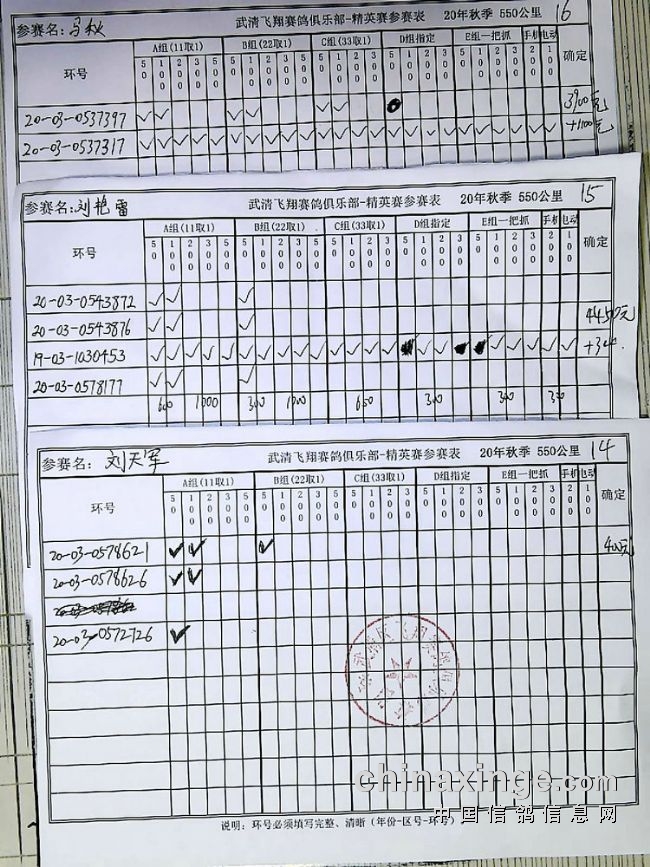 参赛名: 马秋 武清飞翔赛鸽俱乐部-精英赛参赛表 20年秋季 550公里 16
环号 A组(11取1) B组(22取1) C组(33取1) D组指定 E组一把抓 手机 电动 确定
50 100 200 300 500 50 100 200 300 500 50 100 200 300 50 100 200 300 50 100 200 300 200 100
20-03-0537397 ✓ ✓ ✓ ✓ ✓ ✓ 3900元
20-03-0537317 ✓ ✓ ✓ ✓ ✓ ✓ ✓ ✓ ✓ ✓ ✓ ✓ ✓ ✓ ✓ ✓ ✓ ✓ ✓ ✓ ✓ ✓ ✓ ✓ +1100元
参赛名: 刘艳雷 武清飞翔赛鸽俱乐部-精英赛参赛表 20年秋季 550公里 15
环号 A组(11取1) B组(22取1) C组(33取1) D组指定 E组一把抓 手机 电动 确定
50 100 200 300 500 50 100 200 300 500 50 100 200 300 50 100 200 300 50 100 200 300 200 100
20-03-0543872 ✓ ✓ ✓
20-03-0543876 ✓ ✓ ✓ 4450元
19-03-1030453 ✓ ✓ ✓ ✓ ✓ ✓ ✓ ✓ ✓ ✓ ✓ ✓ ✓ ✓ ✓ ✓ ✓ ✓ ✓ ✓ ✓
20-03-0578177 ✓ ✓ ✓
600 1000 300 1000 650 300 300 300
参赛名: 刘天军 武清飞翔赛鸽俱乐部-精英赛参赛表 20年秋季 550公里 14
环号 A组(11取1) B组(22取1) C组(33取1) D组指定 E组一把抓 手机 电动 确定
50 100 200 300 500 50 100 200 300 500 50 100 200 300 50 100 200 300 50 100 200 300 200 100
20-03-0578621 ✓ ✓ ✓ 400元
20-03-0578626 ✓ ✓
20-03-0572726 ✓
chinaxinge.com
中国信鸽信息网
说明: 环号必须填写完整、清晰 (年份-区号-环号)